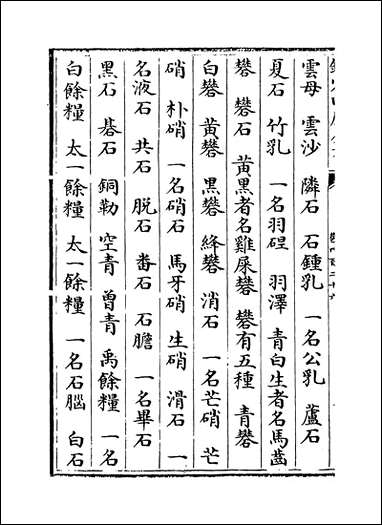 雲母　雲沙　隣石　石鍾乳　一名公乳　蘆石
夏石　竹乳　一名羽碮　羽澤　青白生者名馬齒
礬　礬石　黃黑者名雞屎礬　礬有五種　青礬
白礬　黃礬　黑礬　絳礬　消石　一名芒硝　芒
硝　朴硝　一名硝石　馬牙硝　生硝　滑石　一
名液石　共石　脱石　番石　石膽　一名畢石
黑石　碁石　銅勒　空青　曾青　禹餘糧　一名
白餘糧　太一餘糧　太一餘糧　一名石腦　白石